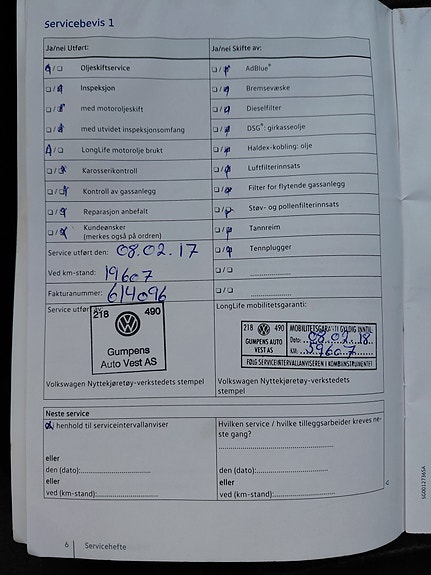 Servicebevis 1
Ja/nei Utført: Ja/nei Skifte av:
Oljeskiftservice AdBlue®
Inspeksjon Bremsevæske
med motoroljeskift Dieselfilter
med utvidet inspeksjonsomfang DSG®: girkasseolje
LongLife motorolje brukt Haldex-kobling: olje
Karosserikontroll Luftfilterinnsats
Kontroll av gassanlegg Filter for flytende gassanlegg
Reparasjon anbefalt Støv- og pollenfilterinnsats
Kundeønsker Tannreim
(merkes også på ordren)
Service utført den: 08.02.17 Tennplugger
Ved km-stand: 19607
Fakturanummer: 614096
Service utført LongLife mobilitetsgaranti:
218 490
Gumpens
Auto Vest AS
218 490 MOBILITETSGARANTI GYLDIG INNTIL
GUMPENS AUTO Dato: 08.02.18
VEST AS KM: 39607
FØLG SERVICEINTERVALLANVISEREN I KOMBIINSTRUMENTET
Volkswagen Nyttekjøretøy-verkstedets stempel Volkswagen Nyttekjøretøy-verkstedets
stempel
Neste service Hvilken service / hvilke tilleggsarbeider kreves ne-
henhold til serviceintervallanviser ste gang?
eller
den (dato): den (dato):
eller eller
ved (km-stand): ved (km-stand):
6 Servicehefte